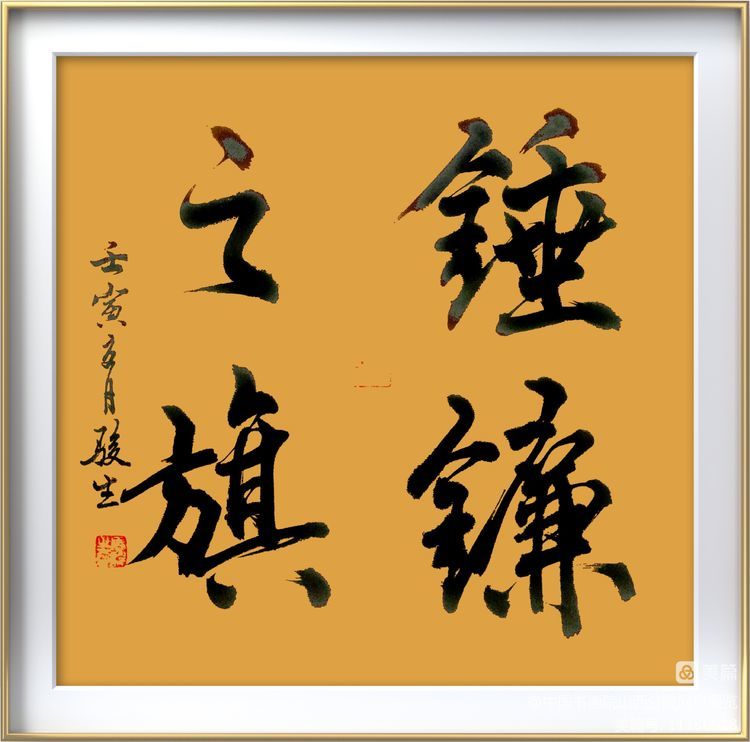 錘鐮
之旗
壬寅五月駿生
美篇